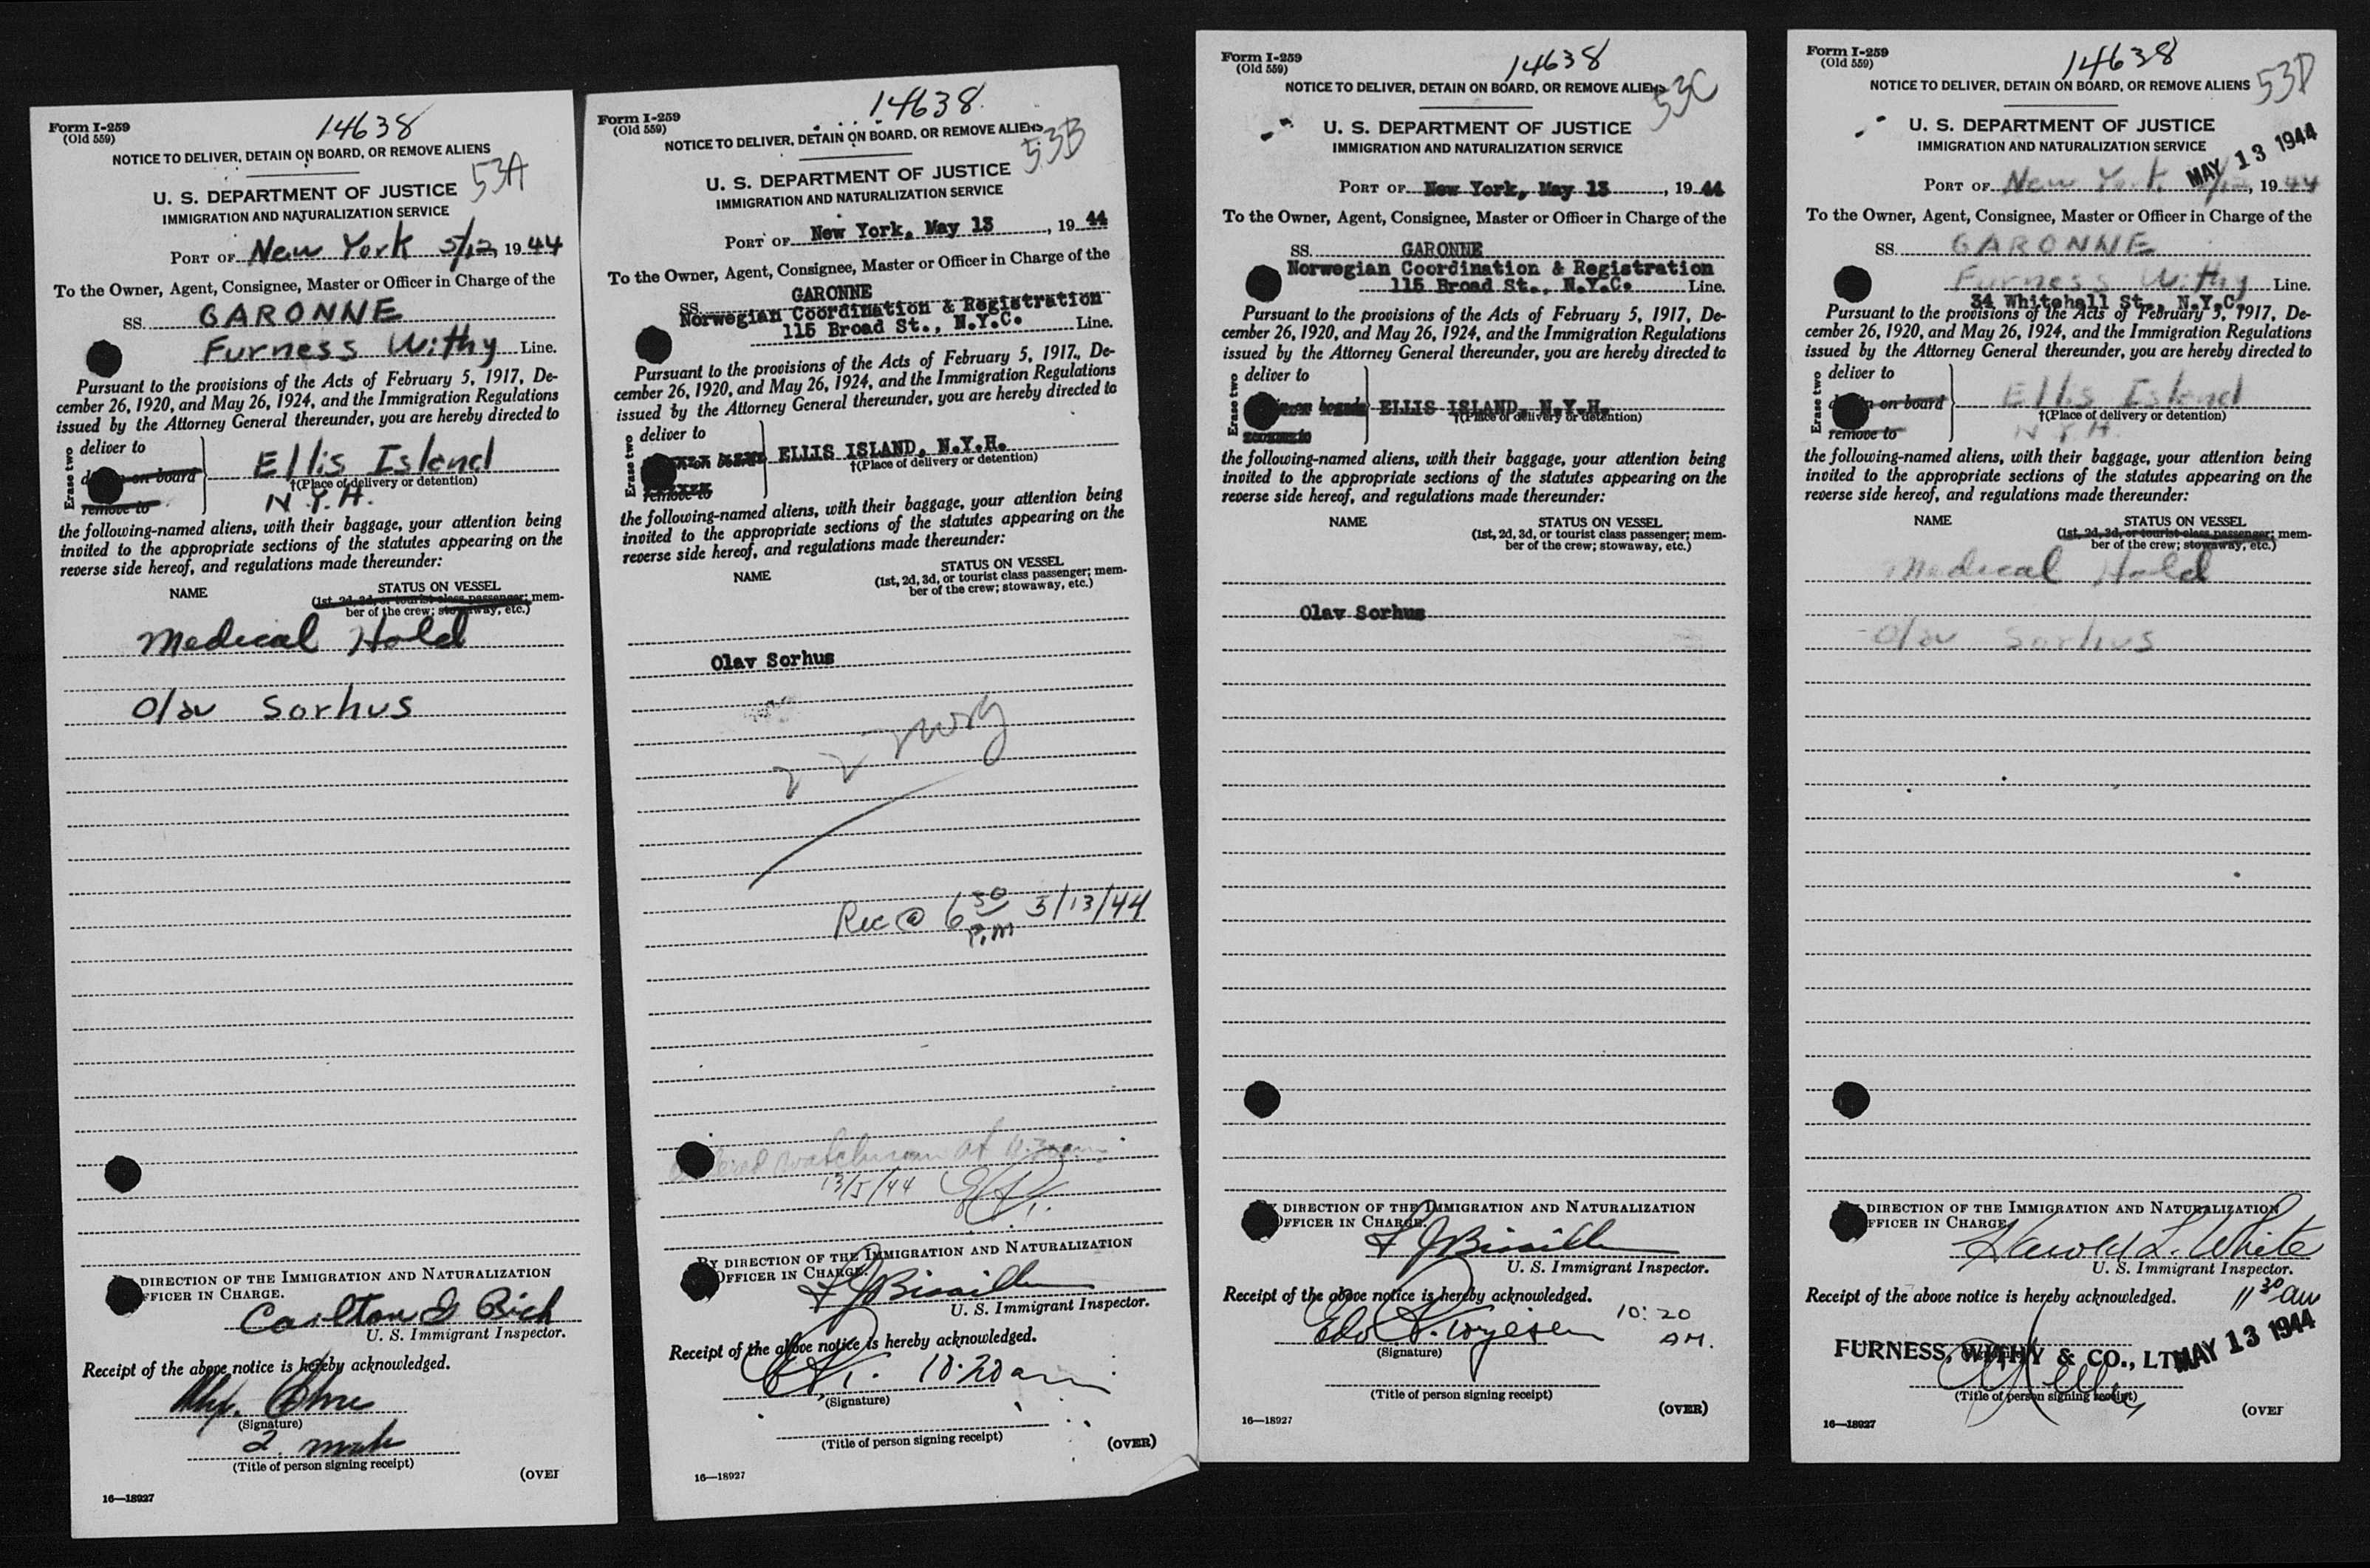 Form I-259
(Old 559)
14638
NOTICE TO DELIVER, DETAIN ON BOARD, OR REMOVE ALIENS
53A
U. S. DEPARTMENT OF JUSTICE
IMMIGRATION AND NATURALIZATION SERVICE
PORT OF New York 5/12, 1944
To the Owner, Agent, Consignee, Master or Officer in Charge of the
SS. GARONNE
Furness Withy Line.
Pursuant to the provisions of the Acts of February 5, 1917, De-
cember 26, 1920, and May 26, 1924, and the Immigration Regulations
issued by the Attorney General thereunder, you are hereby directed to
Erase two
deliver to
on board
remove to
Ellis Island
†(Place of delivery or detention)
N.Y.H.
the following-named aliens, with their baggage, your attention being
invited to the appropriate sections of the statutes appearing on the
reverse side hereof, and regulations made thereunder:
NAME STATUS ON VESSEL
(1st, 2d, 3d, or tourist class passenger; mem-
ber of the crew; stowaway, etc.)
Medical Hold
Olav Sorhus
DIRECTION OF THE IMMIGRATION AND NATURALIZATION
FFICER IN CHARGE.
U. S. Immigrant Inspector.
Receipt of the above notice is hereby acknowledged.
(Signature)
2. mate
(Title of person signing receipt)
(OVER
16—18927
Form I-259
(Old 559)
14638.
NOTICE TO DELIVER, DETAIN ON BOARD, OR REMOVE ALIENS
53B
U. S. DEPARTMENT OF JUSTICE
IMMIGRATION AND NATURALIZATION SERVICE
PORT OF New York, May 13, 1944
To the Owner, Agent, Consignee, Master or Officer in Charge of the
GARONNE
SS. Norwegian Coordination & Registration
115 Broad St., N.Y.C. Line.
Pursuant to the provisions of the Acts of February 5, 1917, De-
cember 26, 1920, and May 26, 1924, and the Immigration Regulations
issued by the Attorney General thereunder, you are hereby directed to
Erase two
deliver to
on board
remove to
ELLIS ISLAND, N.Y.H.
†(Place of delivery or detention)
the following-named aliens, with their baggage, your attention being
invited to the appropriate sections of the statutes appearing on the
reverse side hereof, and regulations made thereunder:
NAME STATUS ON VESSEL
(1st, 2d, 3d, or tourist class passenger; mem-
ber of the crew; stowaway, etc.)
Olav Sorhus
Rec @ 6 30 P.M 5/13/44
watchman at
13/5/44
BY DIRECTION OF THE IMMIGRATION AND NATURALIZATION
OFFICER IN CHARGE.
U. S. Immigrant Inspector.
Receipt of the above notice is hereby acknowledged.
10:20 am
(Signature)
(Title of person signing receipt)
(OVER)
16—18927
Form I-259
(Old 559)
14638
NOTICE TO DELIVER, DETAIN ON BOARD, OR REMOVE ALIENS
53C
U. S. DEPARTMENT OF JUSTICE
IMMIGRATION AND NATURALIZATION SERVICE
PORT OF New York, May 13, 1944
To the Owner, Agent, Consignee, Master or Officer in Charge of the
SS. GARONNE
Norwegian Coordination & Registration
115 Broad St., N.Y.C. Line.
Pursuant to the provisions of the Acts of February 5, 1917, De-
cember 26, 1920, and May 26, 1924, and the Immigration Regulations
issued by the Attorney General thereunder, you are hereby directed to
Erase two
deliver to
ELLIS ISLAND, N.Y.H.
†(Place of delivery or detention)
the following-named aliens, with their baggage, your attention being
invited to the appropriate sections of the statutes appearing on the
reverse side hereof, and regulations made thereunder:
NAME STATUS ON VESSEL
(1st, 2d, 3d, or tourist class passenger; mem-
ber of the crew; stowaway, etc.)
Olav Sorhus
DIRECTION OF THE IMMIGRATION AND NATURALIZATION
OFFICER IN CHARGE.
U. S. Immigrant Inspector.
Receipt of the above notice is hereby acknowledged.
10:20
AM.
(Signature)
(Title of person signing receipt)
(OVER)
16—18927
Form I-259
(Old 559)
14638
NOTICE TO DELIVER, DETAIN ON BOARD, OR REMOVE ALIENS
53D
U. S. DEPARTMENT OF JUSTICE
IMMIGRATION AND NATURALIZATION SERVICE
MAY 13 1944
PORT OF New York 5/12, 1944
To the Owner, Agent, Consignee, Master or Officer in Charge of the
SS. GARONNE
Furness Withy Line.
34 Whitehall St., N.Y.C.
Pursuant to the provisions of the Acts of February 5, 1917, De-
cember 26, 1920, and May 26, 1924, and the Immigration Regulations
issued by the Attorney General thereunder, you are hereby directed to
Erase two
deliver to
on board
remove to
Ellis Island
†(Place of delivery or detention)
N.Y.H.
the following-named aliens, with their baggage, your attention being
invited to the appropriate sections of the statutes appearing on the
reverse side hereof, and regulations made thereunder:
NAME STATUS ON VESSEL
(1st, 2d, 3d, or tourist class passenger; mem-
ber of the crew; stowaway, etc.)
Medical Hold
Olav Sorhus
DIRECTION OF THE IMMIGRATION AND NATURALIZATION
FFICER IN CHARGE
Harold L. White
U. S. Immigrant Inspector.
Receipt of the above notice is hereby acknowledged.
11 30 am
FURNESS, WITHY & CO., LTD.
MAY 13 1944
(Title of person signing receipt)
(OVER
16—18927